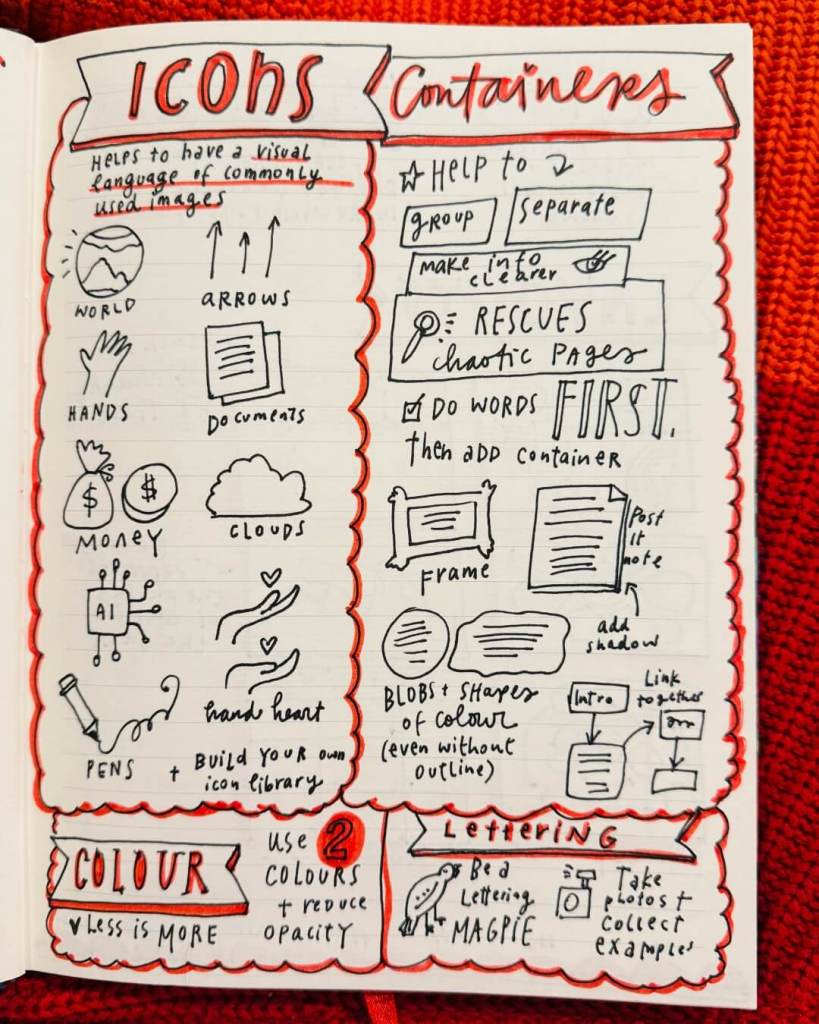 Icons
Helps to have a visual
language of commonly
used images
WORLD
ARROWS
HANDS
Documents
$ $
MONEY
CLOUDS
AI
hand heart
PENS
+ BUILD YOUR own
icon library
Containers
HELP to
group
separate
make info
clearer
RESCUES
chaotic PAGES
DO WORDS FIRST.
then ADD container
FRAME
Post
it
note
add
shadow
BLOBS + SHAPES
of colour
(even without
outline)
Link
together
Intro
COLOUR
Less is MORE
Use 2
COLOURS
+ reduce
opacity
Lettering
Be a
Lettering
MAGPIE
Take
photos +
collect
examples